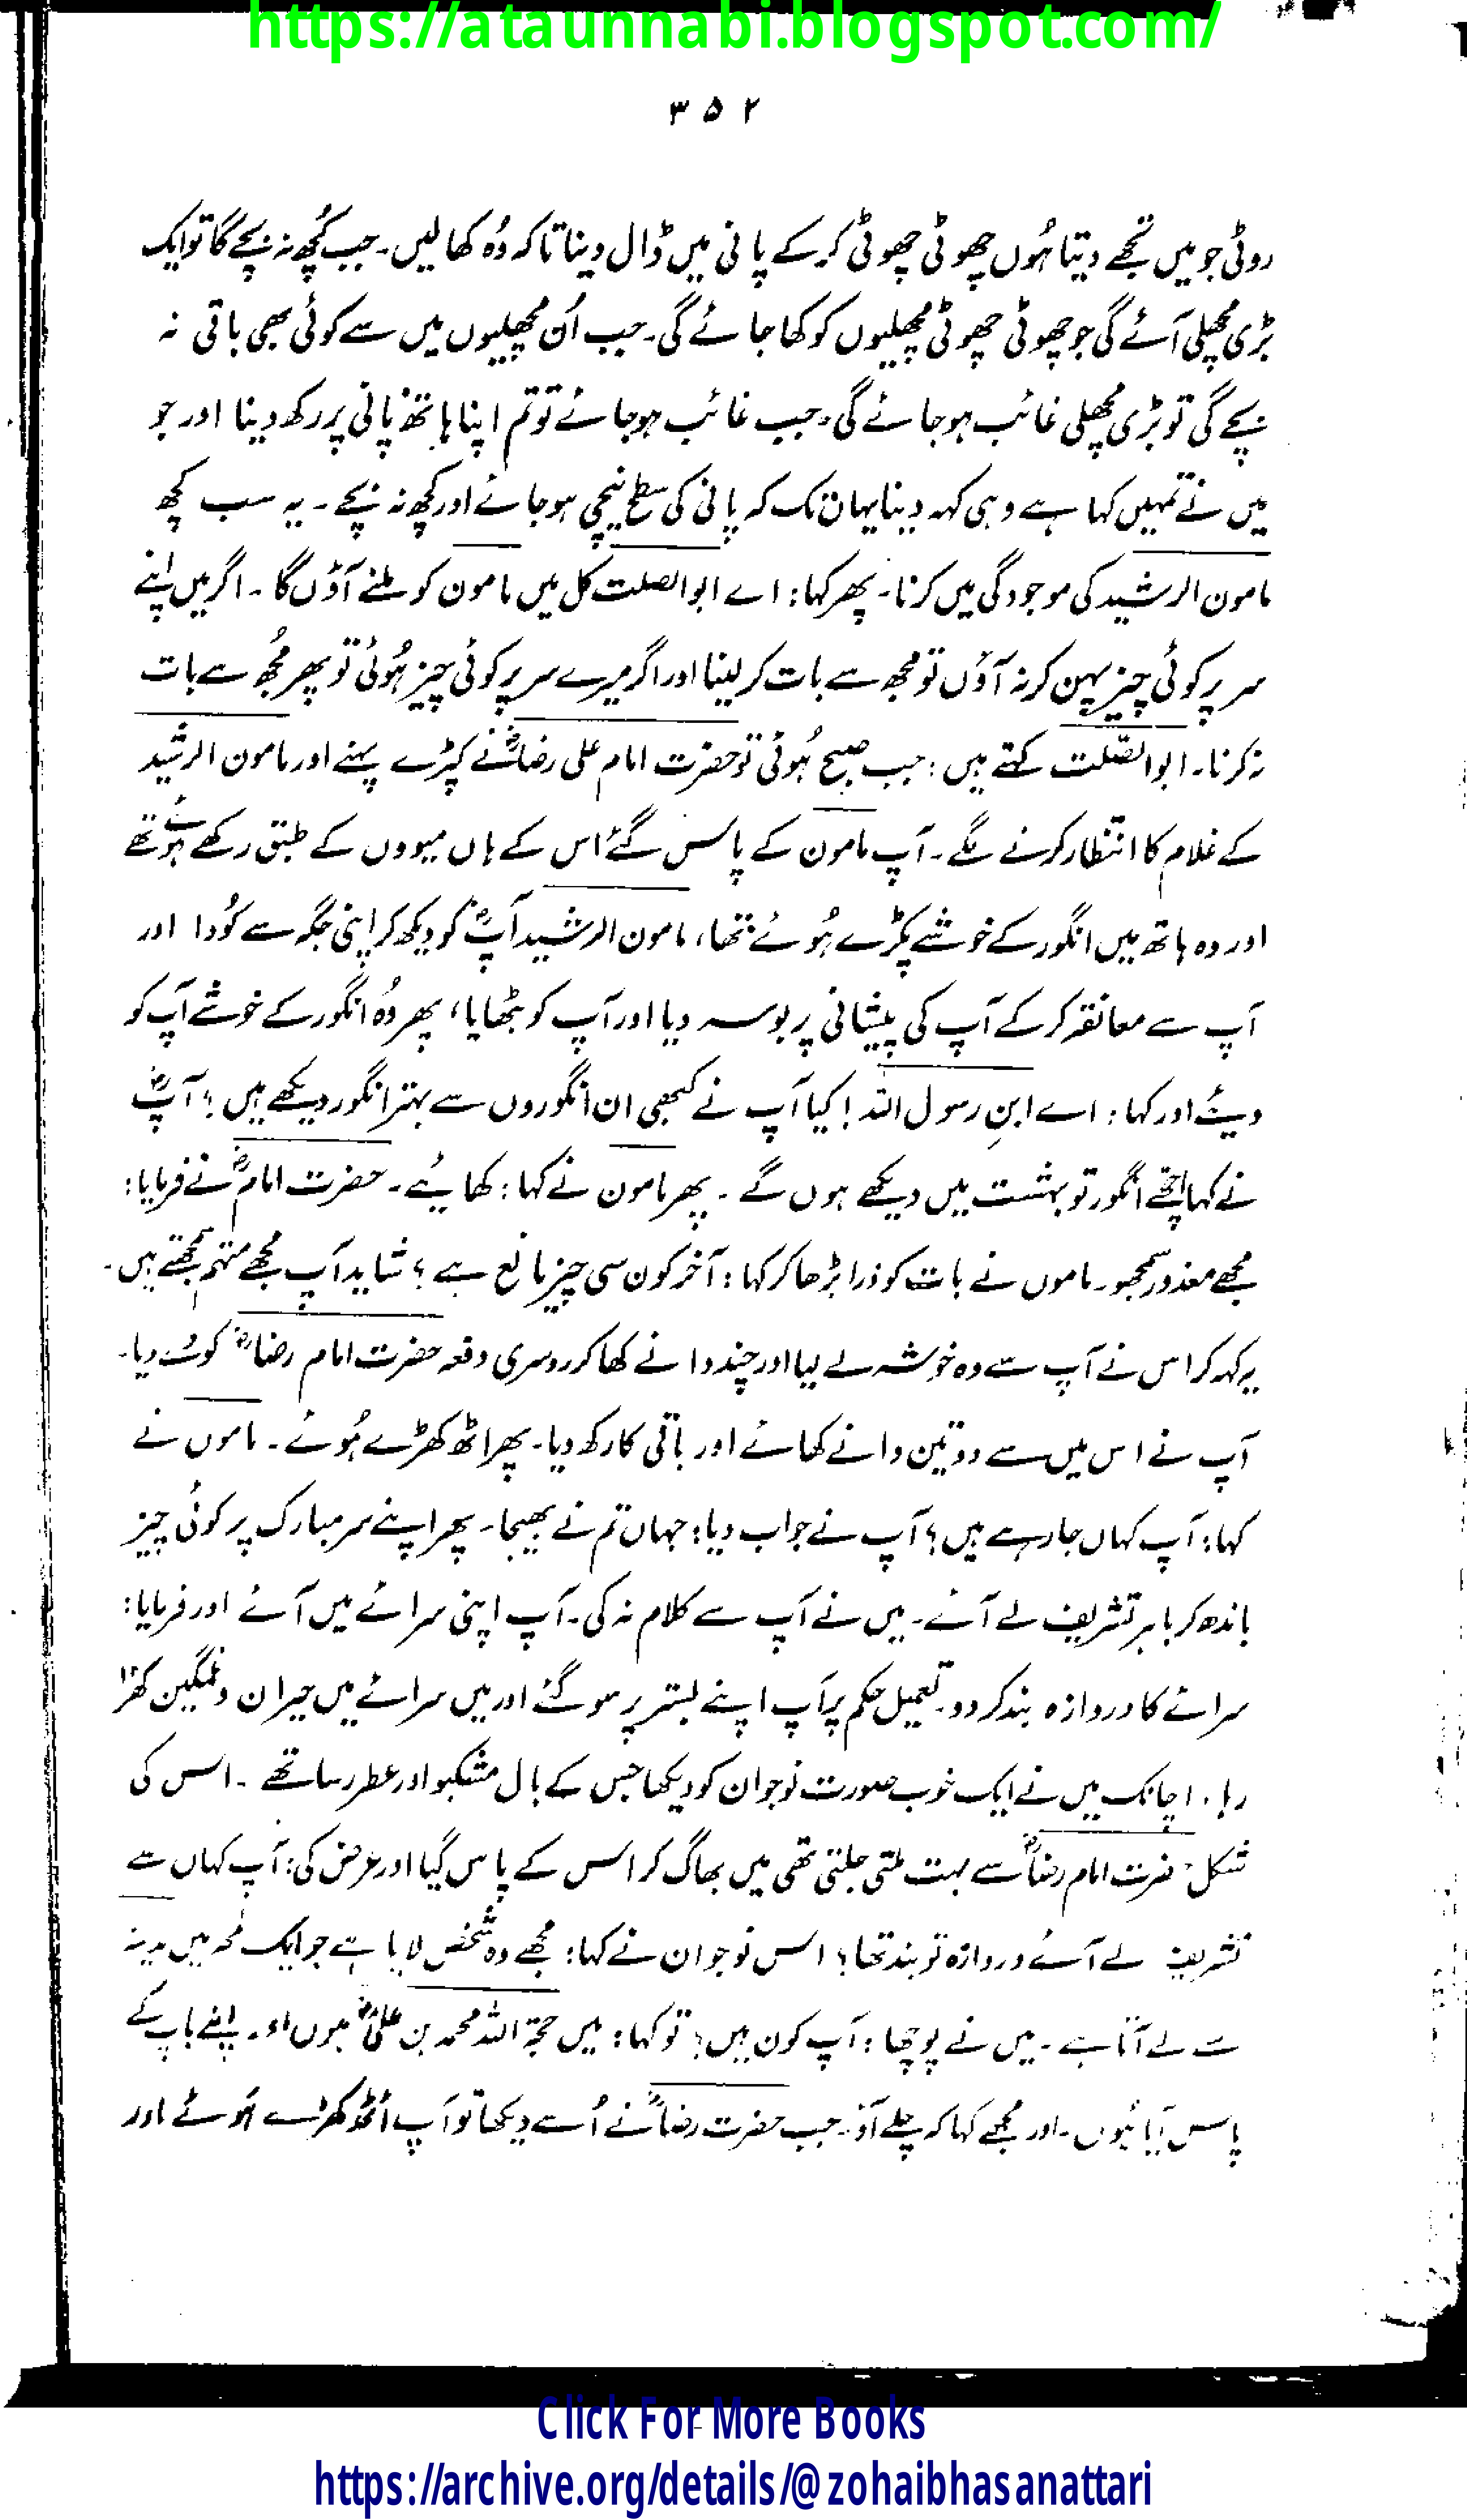 https://ataunnabi.blogspot.com/
۳۵۲
روٹی جو میں تجھے دیتا ہُوں چھوٹی چھوٹی کر کے پانی میں ڈال دینا تاکہ وُہ کھا لیں۔ جب کُچھ نہ بچے گا تو ایک
بڑی مچھلی آئے گی جو چھوٹی چھوٹی مچھلیوں کو کھا جائے گی۔ جب اُن مچھلیوں میں سے کوئی بھی باقی نہ
بچے گی تو بڑی مچھلی غائب ہو جائے گی۔ جب غائب ہو جائے تو تم اپنا ہاتھ پانی پر رکھ دینا اور جو
میں نے تمہیں کہا ہے وہی کہہ دینا یہاں تک کہ پانی کی سطح نیچی ہو جائے اور کچھ نہ بچے ۔ یہ سب کچھ
مامون الرشید کی موجودگی میں کرنا۔ پھر کہا: اے ابو الصلت کل میں مامون کو ملنے آؤں گا ۔ اگر میں اپنے
سر پر کوئی چیز پہن کر نہ آؤں تو مجھ سے بات کر لینا اور اگر میرے سر پر کوئی چیز ہُوئی تو پھر مُجھ سے بات
نہ کرنا۔ ابو الصّلت کہتے ہیں : جب صبح ہُوئی تو حضرت امام علی رضاؓ نے کپڑے پہنے اور مامون الرشید
کے غلام کا انتظار کرنے لگے ۔ آپ مامون کے پاس گئے اس کے ہاں میووں کے طبق رکھے ہوئے تھے
اور وہ ہاتھ میں انگور کے خوشے پکڑے ہُوئے تھا، مامون الرشید آپؓ کو دیکھ کر اپنی جگہ سے کُودا اور
آپ سے معانقہ کر کے آپ کی پیشانی پر بوسہ دیا اور آپ کو بٹھایا، پھر وُہ انگور کے خوشے آپ کو
دیئے اور کہا : اے ابنِ رسول اللہ ! کیا آپ نے کبھی ان انگوروں سے بہتر انگور دیکھے ہیں ؟ آپؓ
نے کہا اچھے انگور تو بہشت میں دیکھے ہوں گے ۔ پھر مامون نے کہا : کھائیے ۔ حضرت امامؓ نے فرمایا :
مجھے معذور سمجھو۔ ماموں نے بات کو ذرا بڑھا کر کہا : آخر کون سی چیز مانع ہے ؟ شاید آپ مجھے متہم سمجھتے ہیں ۔
یہ کہہ کر اس نے آپ سے وہ خوشہ لے لیا اور چند دانے کھا کر دوسری دفعہ حضرت امام رضاؓ کو دے دیا۔
آپ نے اس میں سے دو تین دانے کھائے اور باقی کا رکھ دیا۔ پھر اٹھ کھڑے ہُوئے ۔ ماموں نے
کہا : آپ کہاں جا رہے ہیں ؟ آپ نے جواب دیا : جہاں تم نے بھیجا۔ پھر اپنے سر مبارک پر کوئی چیز
باندھ کر باہر تشریف لے آئے ۔ میں نے آپ سے کلام نہ کی ۔ آپ اپنی سرائے میں آئے اور فرمایا :
سرائے کا دروازہ بند کر دو۔ تعمیل حکم پر آپ اپنے بستر پر سو گئے اور میں سرائے میں حیران و غمگین کھڑا
رہا ۔ اچانک میں نے ایک خوب صورت نوجوان کو دیکھا جس کے بال مشکبو اور عطر رسا تھے ۔ اس کی
شکل حضرت امام رضاؓ سے بہت ملتی جلتی تھی میں بھاگ کر اس کے پاس گیا اور عرض کی : آپ کہاں سے
تشریف لے آئے دروازہ تو بند تھا ؟ اس نوجوان نے کہا : مجھے وہ شخص لایا ہے جو ایک لمحہ میں مدینہ
سے لے آتا ہے ۔ میں نے پوچھا : آپ کون ہیں ؟ تو کہا : میں حجۃ اللہ محمد بن علیؓ ہوں اور اپنے باپ کے
پاس آیا ہُوں ۔ اور مجھے کہا کہ چلے آؤ ۔ جب حضرت رضاؓ نے اُسے دیکھا تو آپ اٹھ کھڑے ہُوئے اور
Click For More Books
https://archive.org/details/@zohaibhasanattari